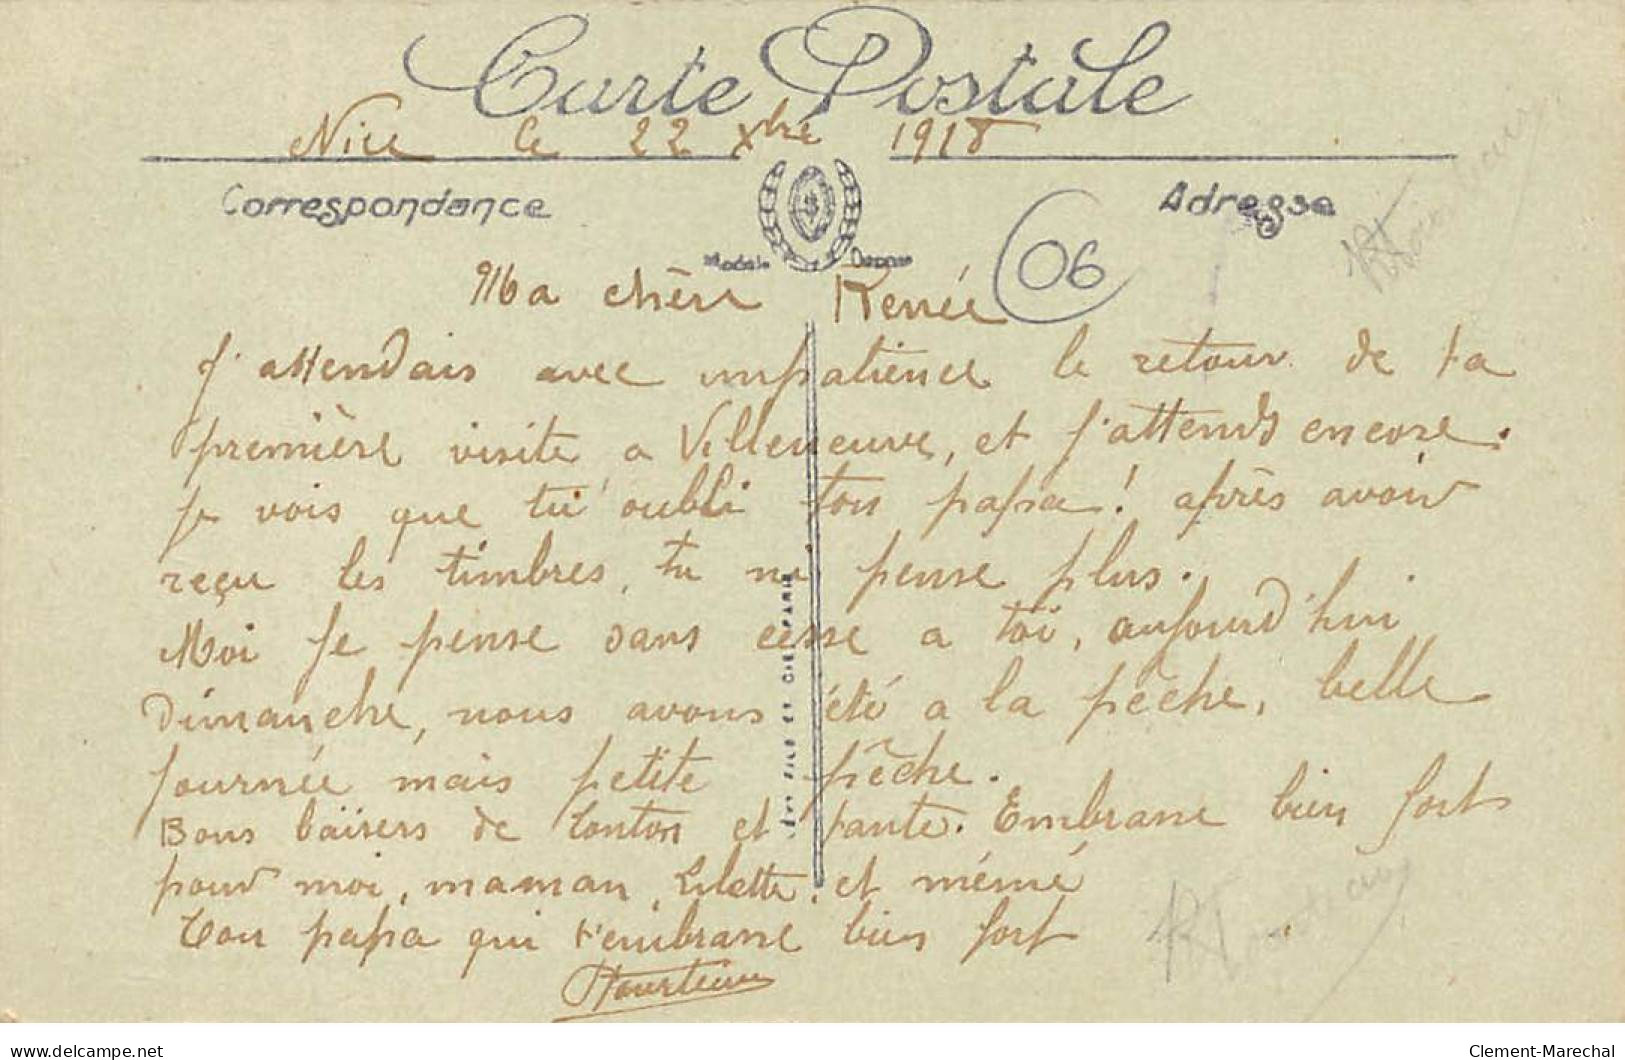 Carte Postale
Nice le 22 Xbre 1918
Correspondance
Adresse
Modèle Déposé
06
Ma chère Renée
J'attendais avec impatience le retour de ta
première visite a Villeneuve, et j'attends encore.
Je vois que tu oubli ton papa! après avoir
reçu les timbres, tu ni pense plus.
Moi je pense sans cesse a toi, aujourd'hui
Dimanche, nous avons été a la pêche, belle
journée mais petite pêche.
Bons baisers de tonton et tante. Embrasse bien fort
pour moi, maman, Lilette, et mémé
Ton papa qui t'embrasse bien fort
FILS ET CIE, PARIS
delcampe.net
Clement-Marechal